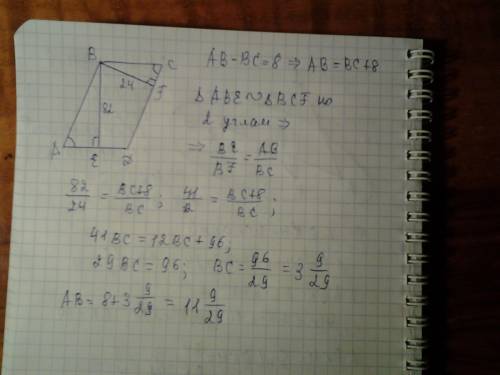 B C
24 F
82
A E D
AB-BC=8 ⇒ AB=BC+8
ΔABE∼ΔBCF по
2 углам ⇒
⇒ BE/BF = AB/BC
82/24 = BC+8/BC; 41/12 = BC+8/BC;
41BC=12BC+96;
29BC=96; BC=96/29=3 9/29
AB=8+3 9/29=11 9/29